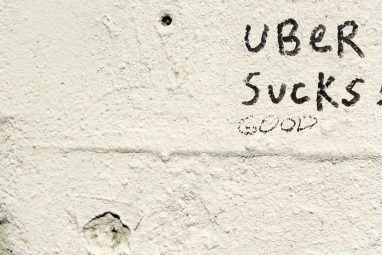 UBER
SUCKS
GOOD